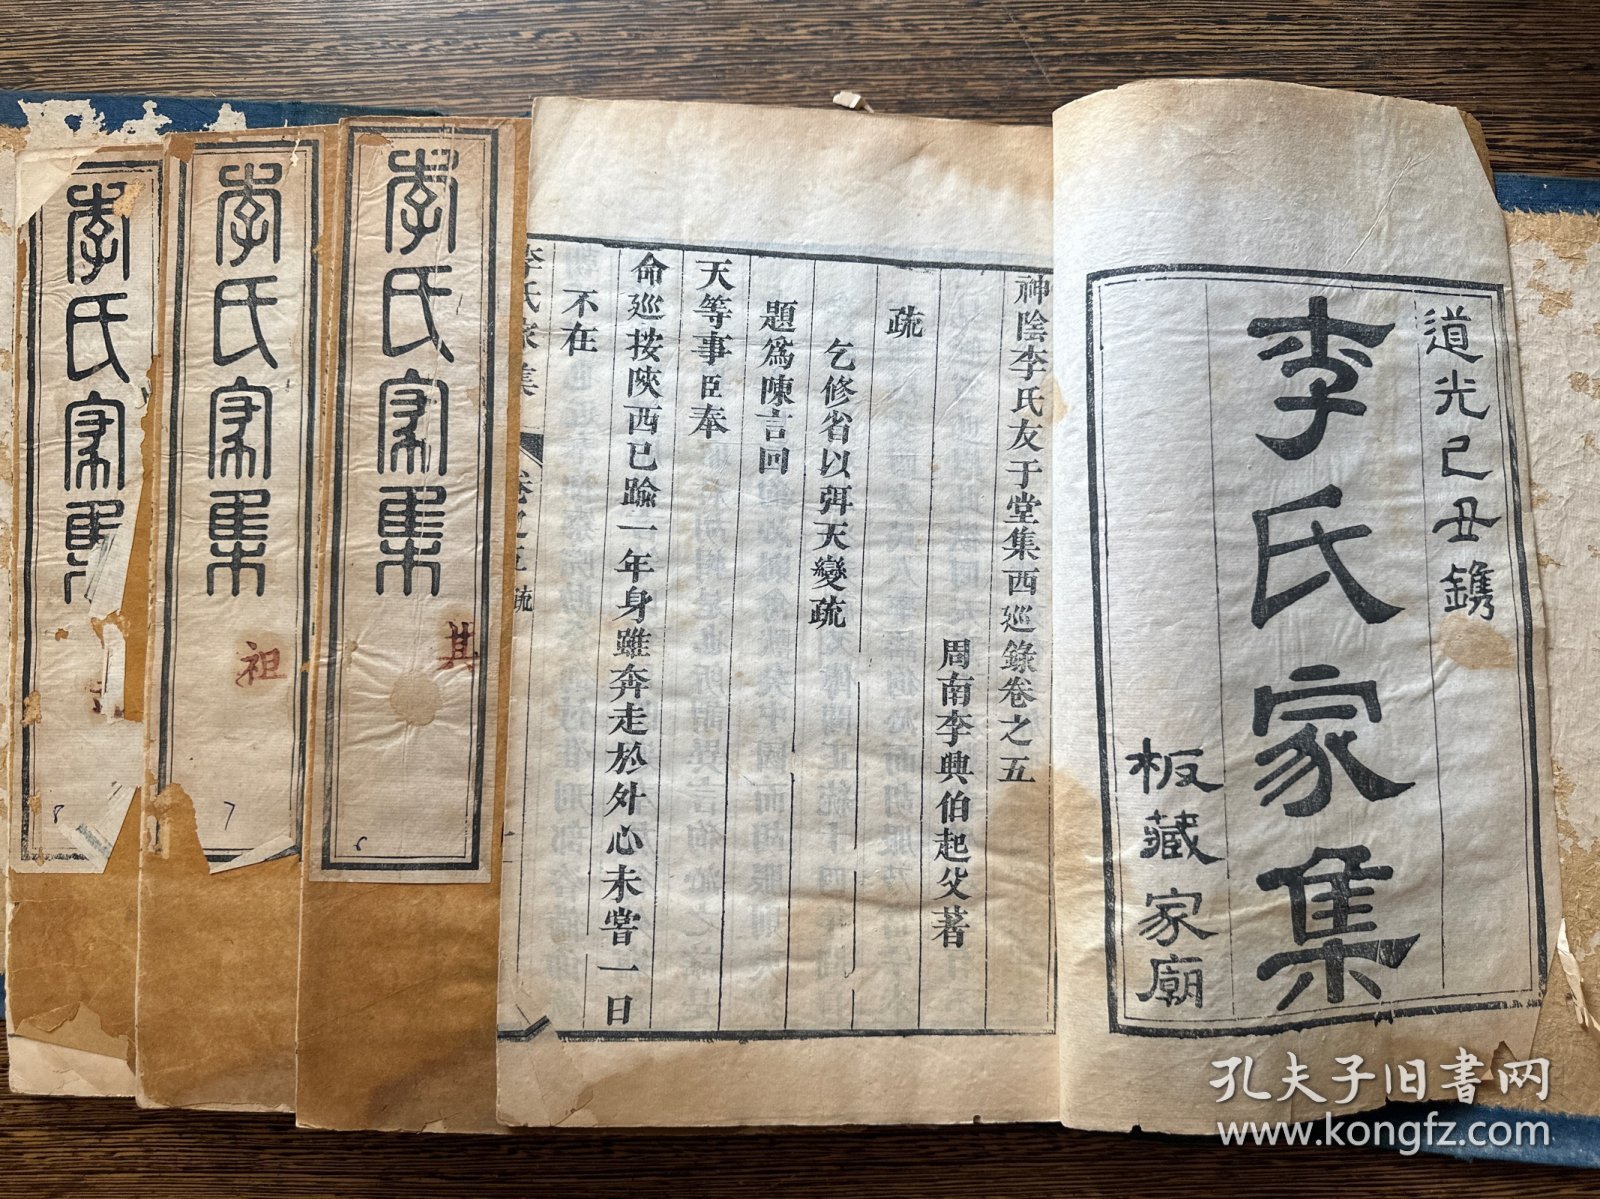 道光己丑鐫
李氏家集
板藏家廟
神陰李氏友于堂集西巡錄卷之五
周南李興伯起父著
疏
乞修省以弭天變疏
題為陳言回
天等事臣奉
命巡按陝西已踰一年身雖奔走於外心未嘗一日
不在
李氏家集
卷之五 疏
李氏家集
其
6
李氏家集
祖
7
李氏家集
8
孔夫子旧書网
www.kongfz.com